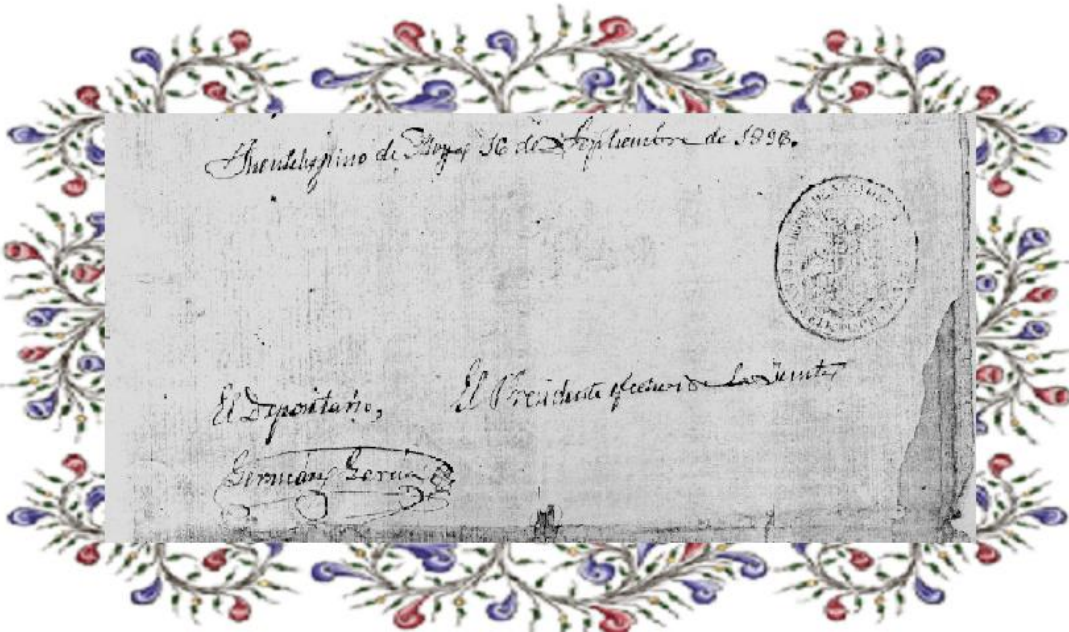 Fuentelespino de Moya 16 de Septiembre de 1896.
El Depositario, El Presidente efectivo de la Junta
Germán García